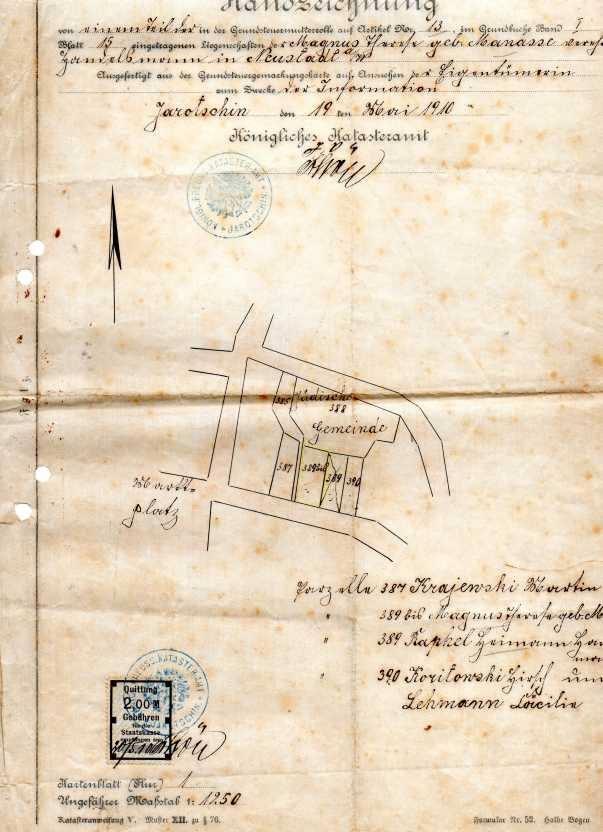 Handzeichnung
von einem Teil der in der Grundsteuermutterrolle auf Artikel No. 13, im Grundbuche Band I
Blatt 15 eingetragenen Liegenschaften der Magnus Therese geb. Manasse
Handelsmann in Neustadt a/W
Ausgefertigt aus der Grundsteuergemarkungskarte auf Ansuchen der Eigentümerin
zum Zwecke der Information
Jarotschin den 19 ten Mai 1910
Königliches Katasteramt
KÖNIGL. PREUSS. KATASTER-AMT JAROTSCHIN
385
Jüdische
388
Gemeinde
387
389 bis
389
390
Markt-
platz
Parzelle 387 Krajewski Martin
" 389 bis Magnus Therese geb. M
" 389 Raphel Heimann Ha
" 390 Koritowski Hirsch und
Lehmann Cäcilie
Quittung
2,00 M
Gebühren
für die
Staatskasse
empfangen
Kartenblatt (Flur) 1
Ungefährer Maßstab 1: 1250
Katasteranweisung V. Muster XII. zu § 76.
Formular Nr. 52. Halbe Bogen